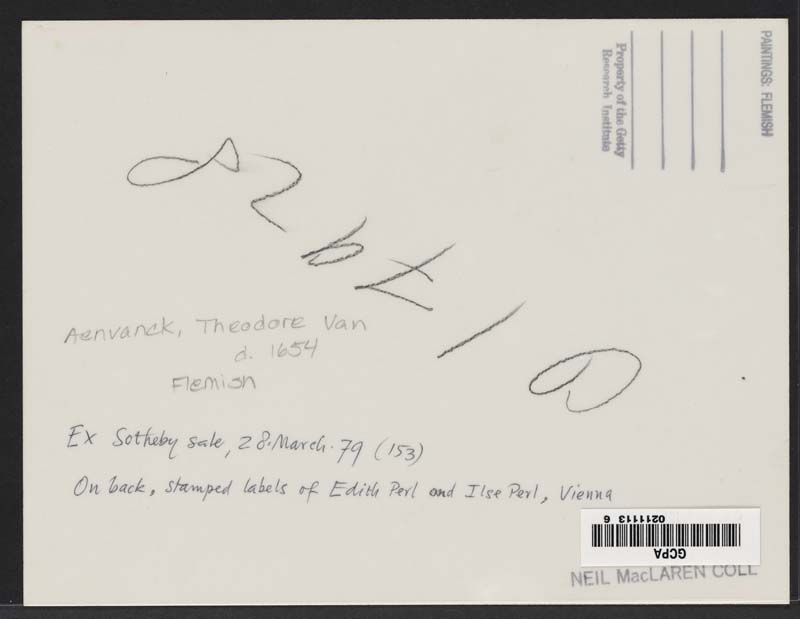 PAINTINGS: FLEMISH
Property of the Getty
Research Institute
Aenvanck, Theodore Van
d. 1654
Flemish
Ex Sotheby sale, 28.March.79 (153)
On back, stamped labels of Edith Perl and Ilse Perl, Vienna
0211113 6
GCPA
NEIL MacLAREN COLL